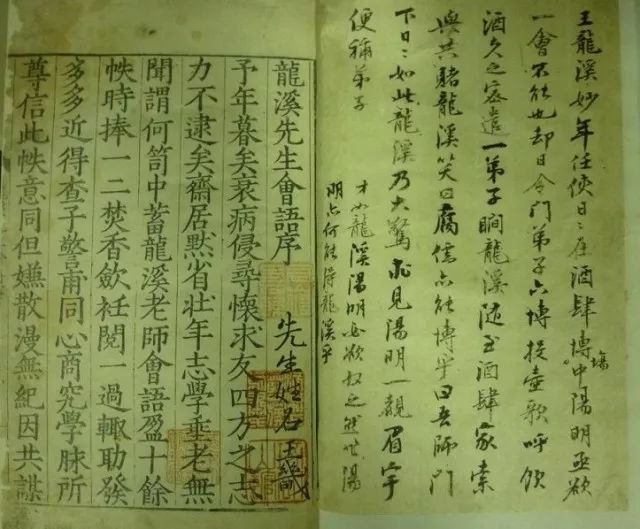 王龍溪妙年任俠日〻在酒肆博塲中陽明亟欲
一會不能也却日令門弟子六博投壺歌呼飲
酒久之密遣一弟子瞷龍溪隨至酒肆家索
與共賭龍溪笑曰腐儒亦能博乎曰吾師門
下日〻如此龍溪乃大驚求見陽明一覩眉宇
便稱弟子
才如龍溪陽明必欲収之然非陽
明亦何能得龍溪乎
龍溪先生會語序
先生姓名王畿
予年暮矣衰病侵尋懷求友四方之志
力不逮矣齋居默省壯年志學垂老無
聞謂何笥中蓄龍溪老師會語盈十餘
帙時捧一二焚香歛衽閱一過輙助發
多多近得查子警甫同心商究學脉所
尊信此帙意同但嫌散漫無紀因共謀